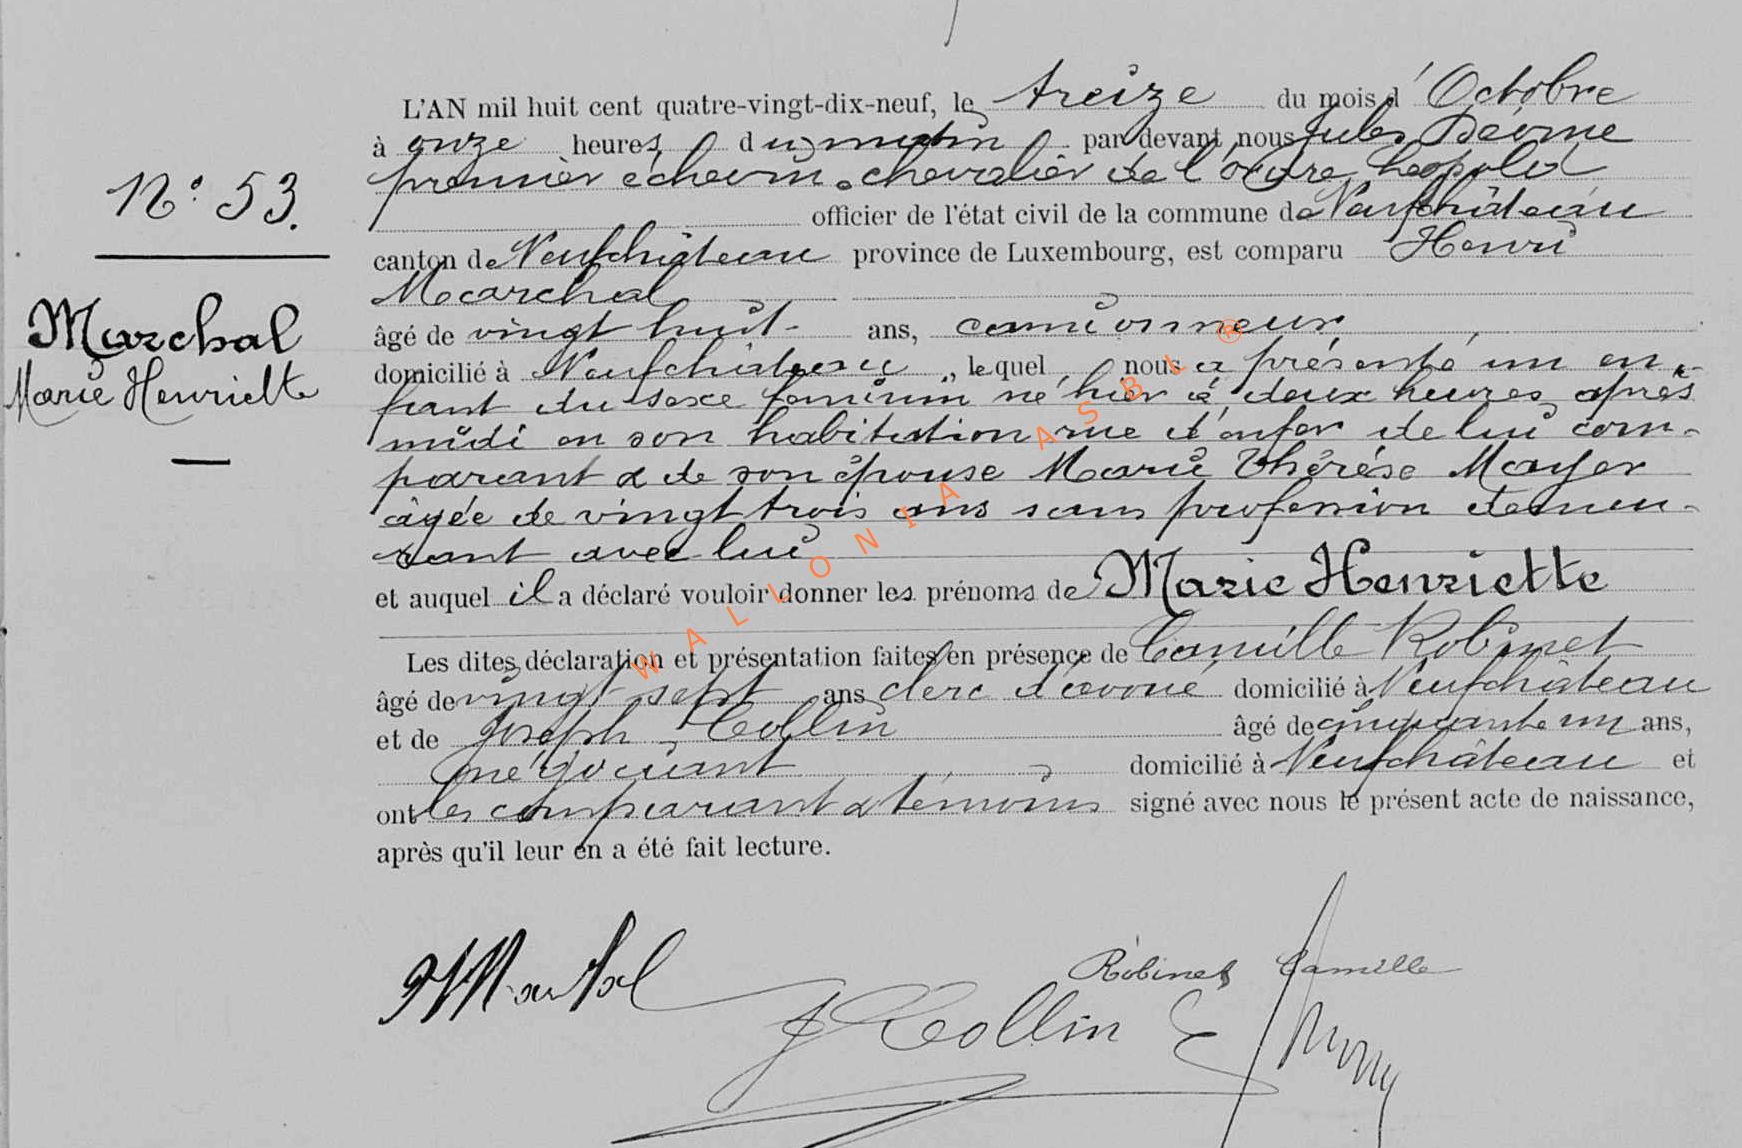 L'AN mil huit cent quatre-vingt-dix-neuf, le treize du mois d'Octobre
à onze heures du matin par devant nous Jules
premier échevin, chevalier de l'ordre Léopold
officier de l'état civil de la commune de Neufchâteau
canton de Neufchâteau province de Luxembourg, est comparu Henri
Marchal
âgé de vingt huit ans, camionneur
domicilié à Neufchâteau, lequel nous a présenté un en-
fant du sexe féminin né hier à deux heures après
midi en son habitation rue d'enfer de lui com-
parant & de son épouse Marie Thérèse Mayer
âgée de vingt trois ans sans profession demeu-
rant avec lui
et auquel il a déclaré vouloir donner les prénoms de Marie Henriette
Les dites déclaration et présentation faites en présence de Camille Robinet
âgé de vingt sept ans clerc d'avoué domicilié à Neufchâteau
et de Joseph Collin âgé de cinquante un ans,
négociant domicilié à Neufchâteau et
ont les comparant & témoins signé avec nous le présent acte de naissance,
après qu'il leur en a été fait lecture.
N° 53.
Marchal
Marie Henriette
HMarchal
Robinet Camille
J Collin
WALLONIA ASBL ®